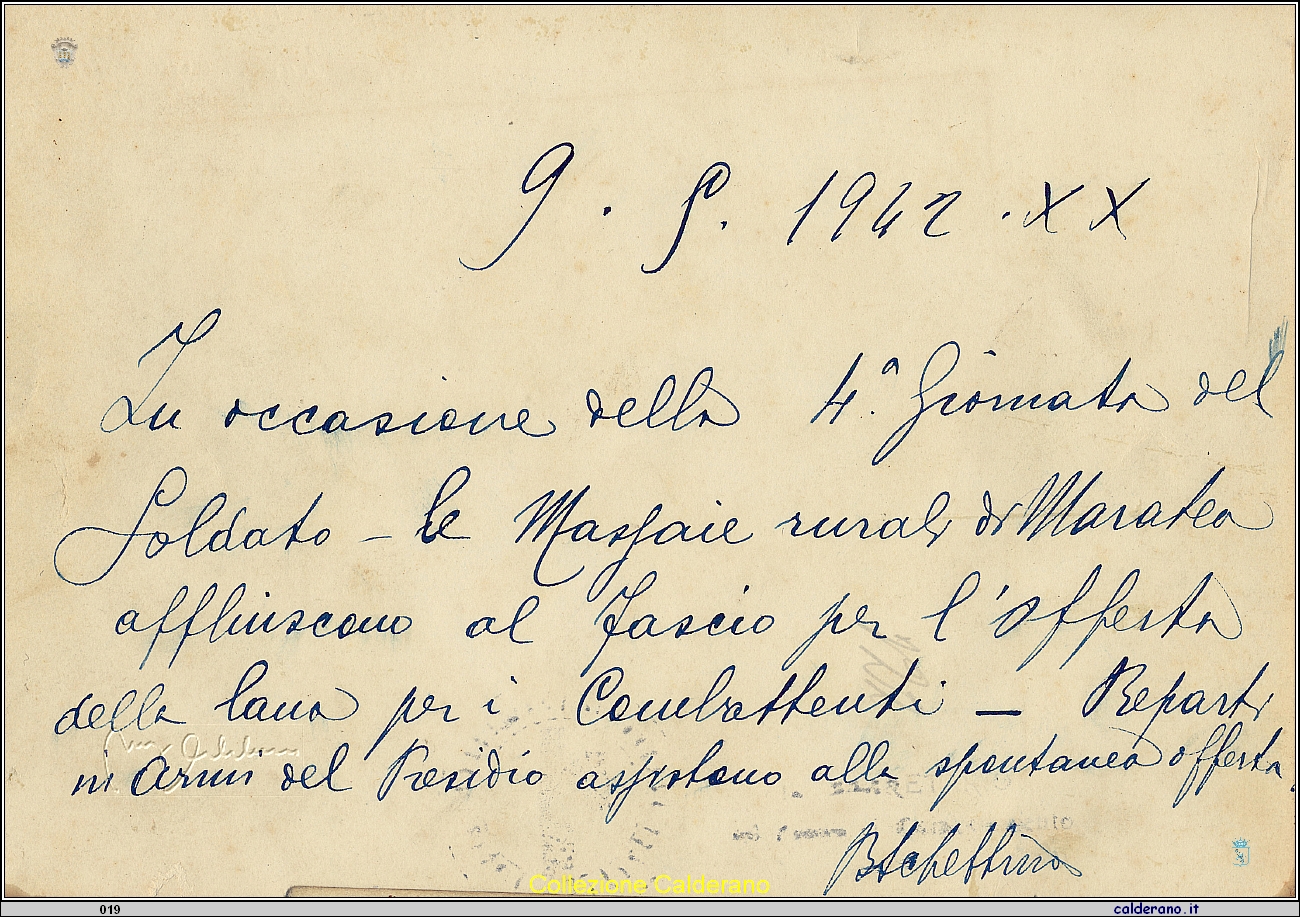 9 . 5. 1942 . XX
In occasione della 4ª Giornata del
Soldato – le Massaie rurali di Maratea
affluiscono al Fascio per l'offerta
della lana per i Combattenti – Reparti
in armi del Presidio assistono alla spontanea offerta.
BSchettino
Collezione Calderano
019
calderano.it